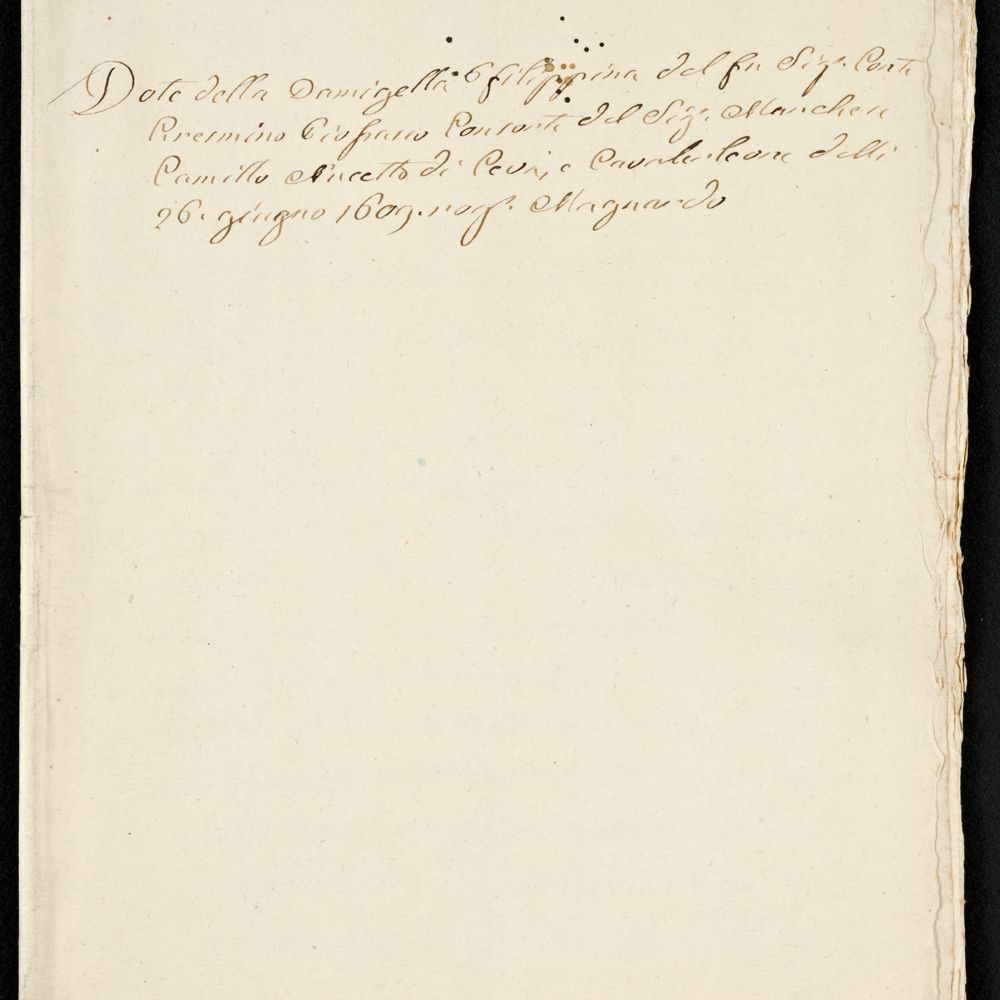 Dote della Damigella Filippina del fu Sig.r Conte
Consorte del Sig.r Marchese
Camillo Nucetto di Ceva, e Cavalerleone delli
26. giugno 1609. rog.to Magnardo